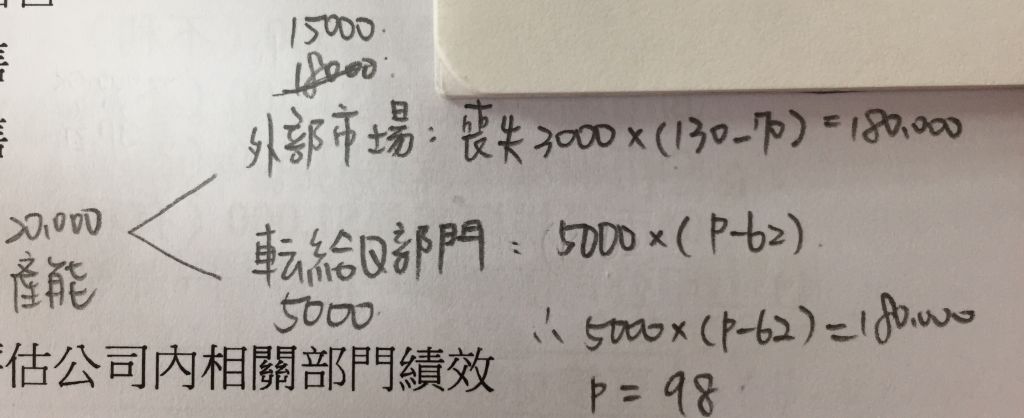 15000.
18000.
外部市場：喪失3000×(130-70)=180,000
20,000
產能
転給Q部門：5000×(P-62).
5000
∴ 5000×(P-62)=180,000
估公司內相關部門績效
P=98.